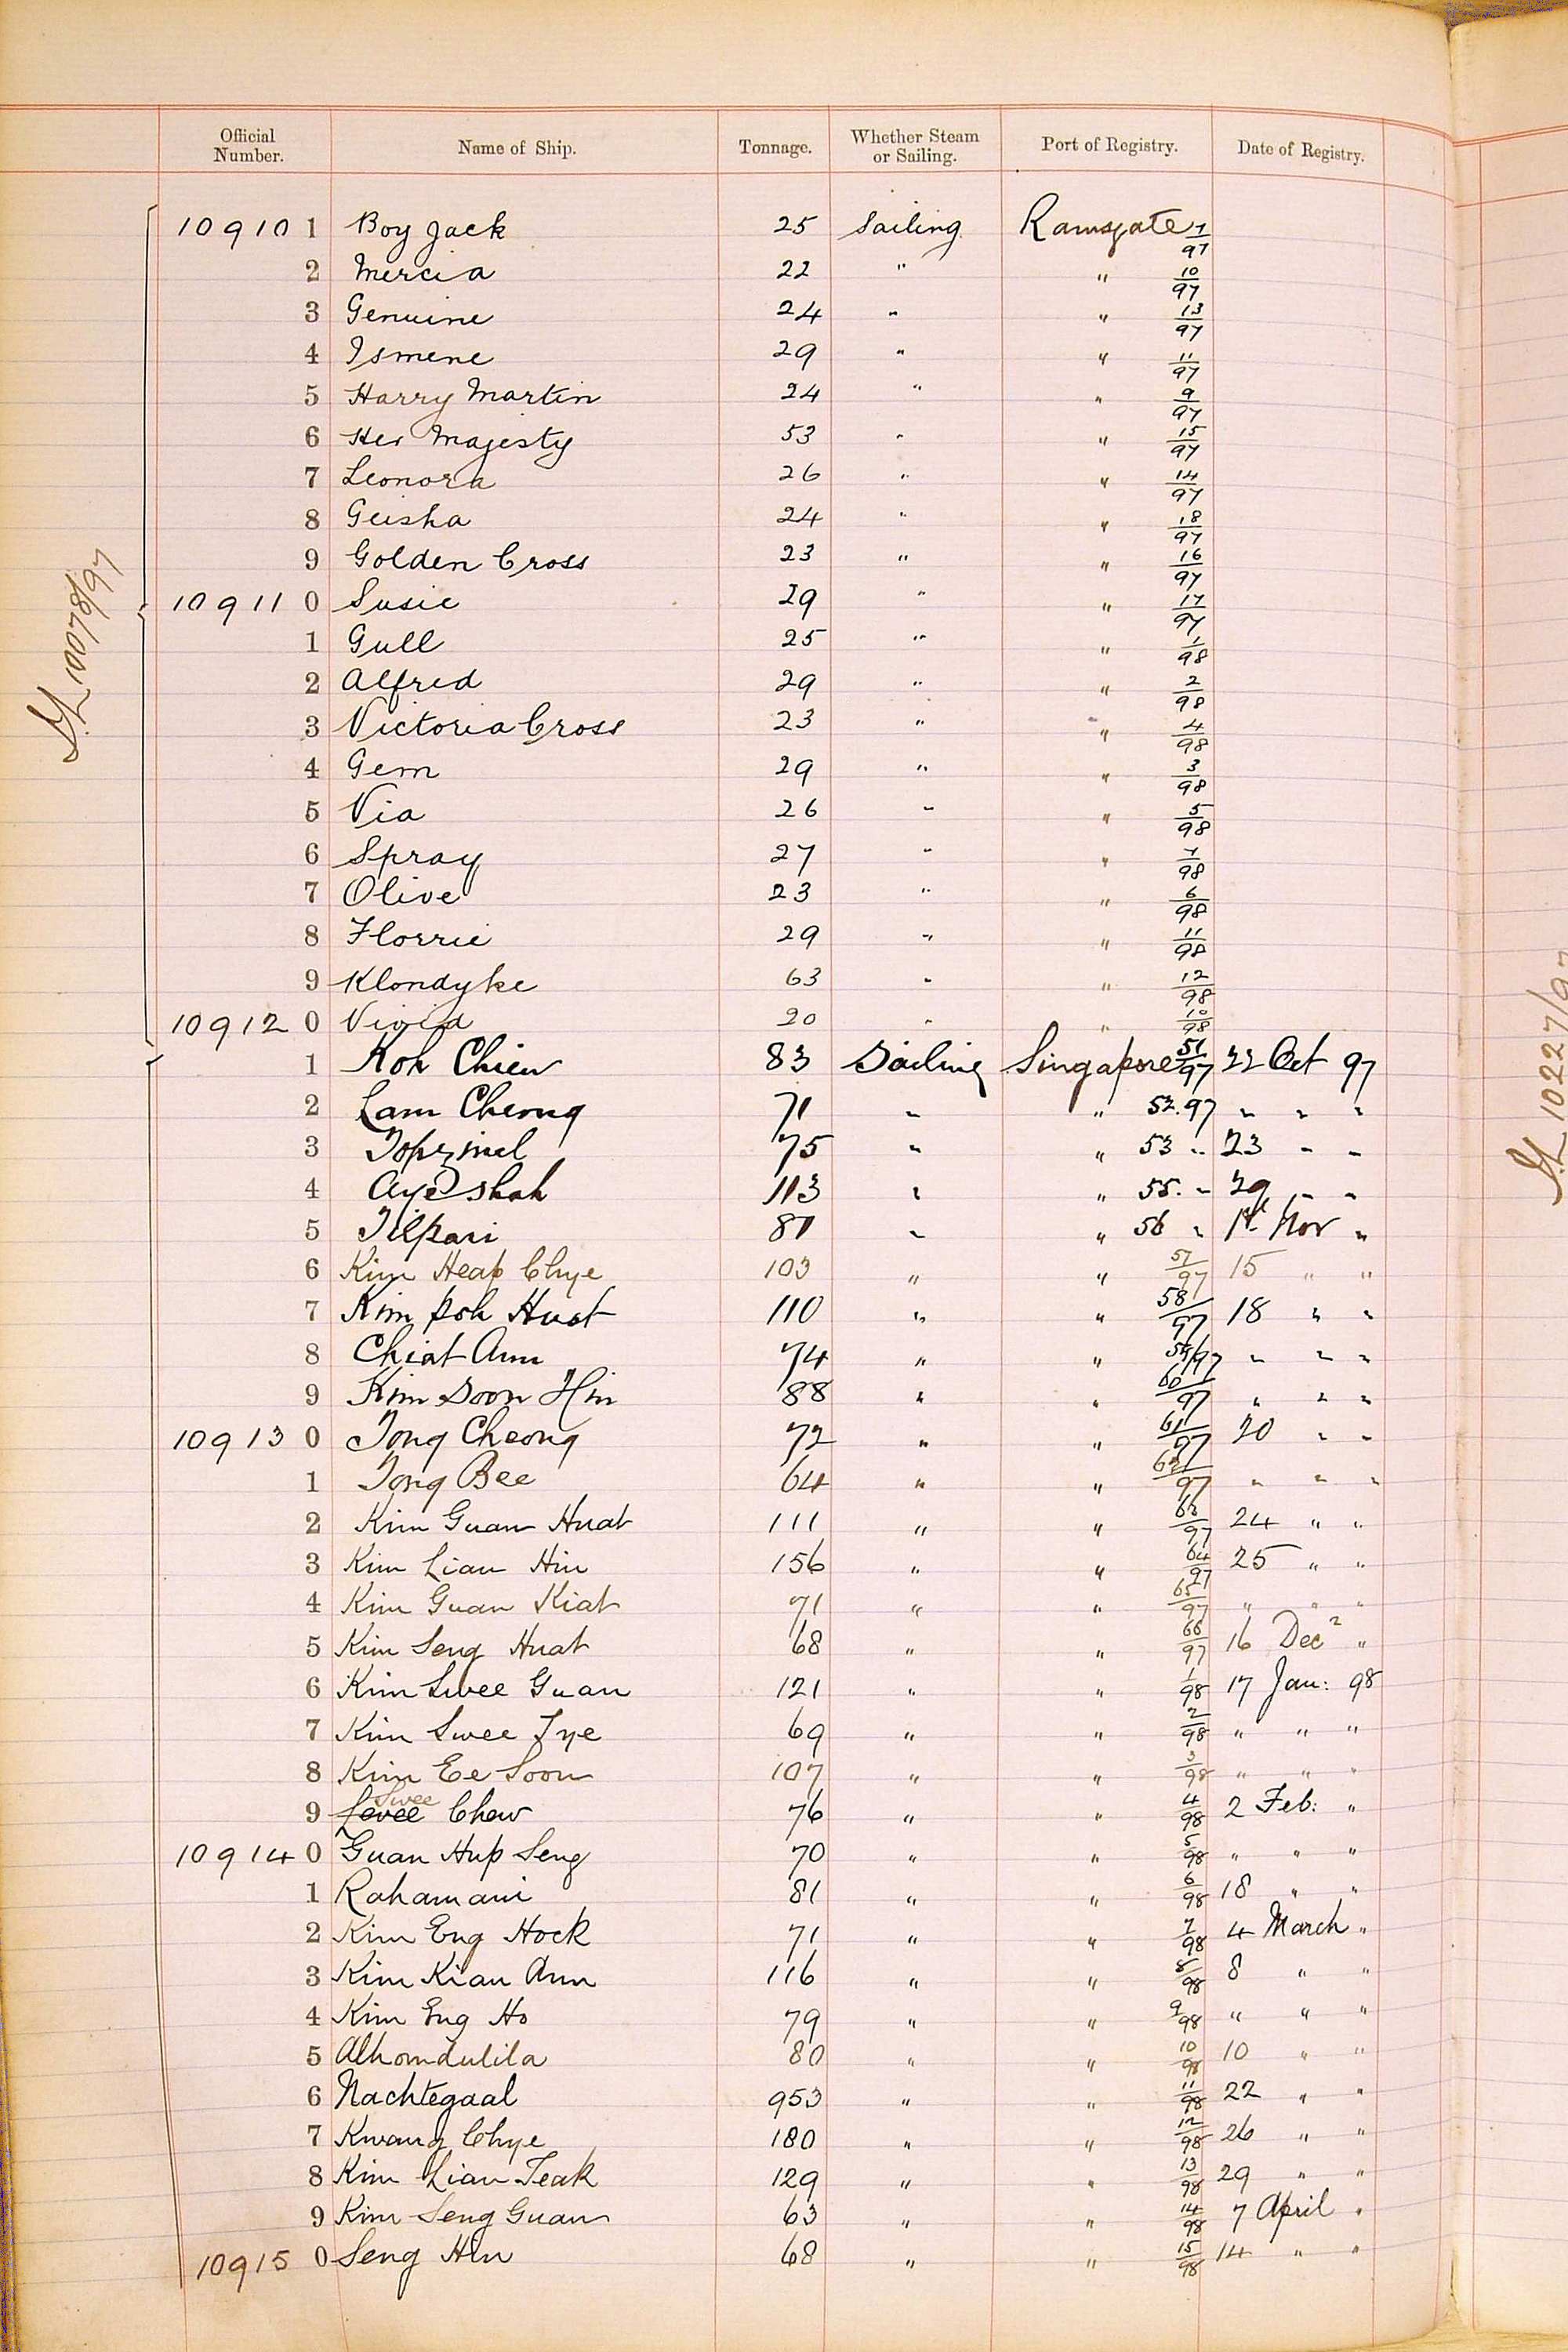 Official Number. Name of Ship. Tonnage. Whether Steam or Sailing. Port of Registry. Date of Registry.
10910 1 Boy Jack 25 Sailing Ramsgate 7/97
2 Mercia 22 " " 10/97
3 Genuine 24 " " 13/97
4 Ismene 29 " " 11/97
5 Harry Martin 24 " " 9/97
6 Her Majesty 53 " " 15/97
7 Leonora 26 " " 14/97
8 Geisha 24 " " 18/97
9 Golden Cross 23 " " 16/97
10911 0 Susie 29 " " 17/97
1 Gull 25 " " 1/98
2 Alfred 29 " " 2/98
3 Victoria Cross 23 " " 4/98
4 Gem 29 " " 3/98
5 Via 26 " " 5/98
6 Spray 27 " " 7/98
7 Olive 23 " " 6/98
8 Florrie 29 " " 11/98
9 Klondyke 63 " " 12/98
10912 0 Vivid 20 " " 10/98
1 Koh Chien 83 Sailing Singapore 51/97 22 Oct 97
2 Lam Cheong 71 " " 52.97 " " "
3 75 " " 53 " 23 " "
4 Aye shah 113 " " 55. " 29 " "
5 Tilpari 81 " " 56 " 1st Nov "
6 Kim Heap Chye 103 " " 57/97 15 " "
7 Kim Poh Huat 110 " " 58/97 18 " "
8 Chiat Ann 74 " " 59/97 " " "
9 Kim Soon Hin 88 " " 60/97 " " "
10913 0 Tong Cheong 72 " " 61/97 20 " "
1 Tong Bee 64 " " 62/97 " " "
2 Kim Guan Huat 111 " " 63/97 24 " "
3 Kim Lian Hin 156 " " 64/97 25 " "
4 Kim Guan Kiat 71 " " 65/97 " " "
5 Kim Seng Huat 68 " " 66/97 16 Decr "
6 Kim Swee Guan 121 " " 1/98 17 Jan: 98
7 Kim Swee Tye 69 " " 2/98 " " "
8 Kim Ee Soon 107 " " 3/98 " " "
9 Swee Chow 76 " " 4/98 2 Feb: "
10914 0 Guan Hup Seng 70 " " 5/98 " " "
1 Rahamani 81 " " 6/98 18 " "
2 Kim Eng Hock 71 " " 7/98 4 March "
3 Kim Kian Ann 116 " " 8/98 8 " "
4 Kim Eng Ho 79 " " 9/98 " " "
5 Alhomdulila 80 " " 10/98 10 " "
6 Nachtegaal 953 " " 11/98 22 " "
7 Kwang Chye 180 " " 12/98 26 " "
8 Kim Lian Teak 129 " " 13/98 29 " "
9 Kim Seng Guan 63 " " 14/98 7 April "
10915 0 Seng Hin 68 " " 15/98 14 " "
10078/97
10227/97